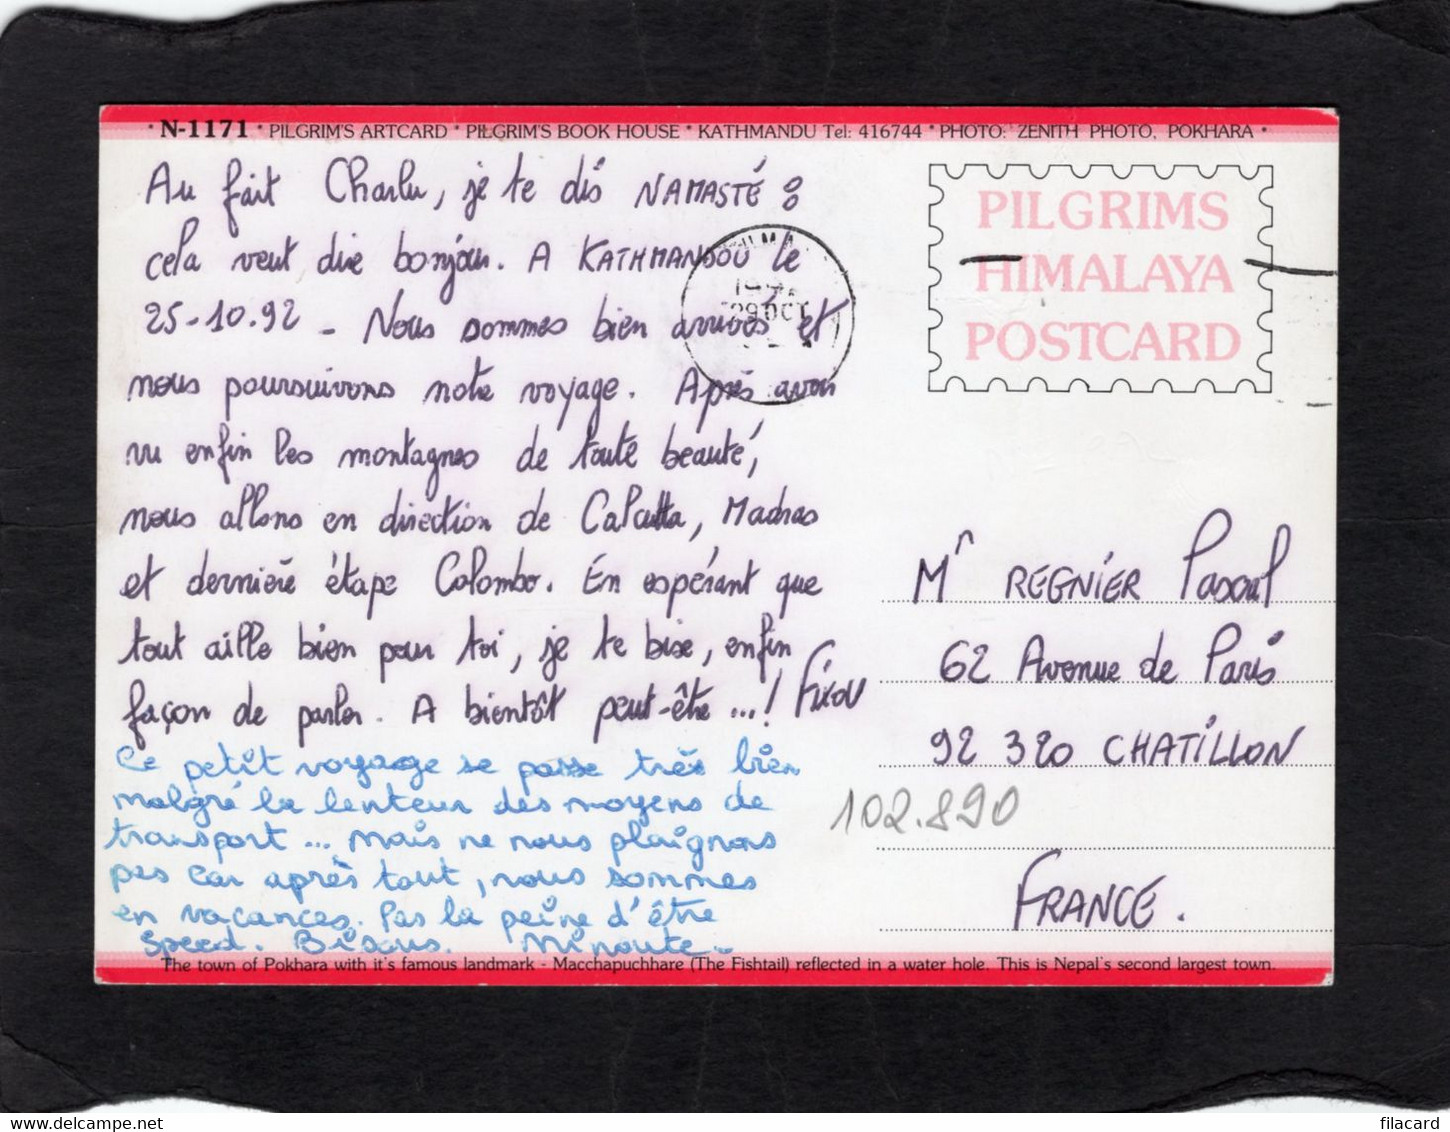 * N-1171 * PILGRIM'S ARTCARD * PILGRIM'S BOOK HOUSE * KATHMANDU Tel: 416744 * PHOTO: ZENITH PHOTO, POKHARA *
Au fait Charlu, je te dis NAMASTÉ :
cela veut dire bonjour. A KATHMANDOU le
25-10.92 - Nous sommes bien arrivés et
nous poursuivons notre voyage. Après avoir
vu enfin les montagnes de toute beauté,
nous allons en direction de Calcutta, Madras
et dernière étape Colombo. En espérant que
tout aille bien pour toi, je te bise, enfin
façon de parler. A bientôt peut-être ...! Firou
Ce petit voyage se passe très bien
malgré la lenteur des moyens de
transport ... mais ne nous plaignons
pas car après tout, nous sommes
en vacances. Pas la peine d'être
speed. Bisous. Minoute -
PILGRIMS
HIMALAYA
POSTCARD
29 OCT
Mr REGNIER Pascal
62 Avenue de Paris
92 320 CHATILLON
102.890
FRANCE.
The town of Pokhara with it's famous landmark - Macchapuchhare (The Fishtail) reflected in a water hole. This is Nepal's second largest town.
filacard